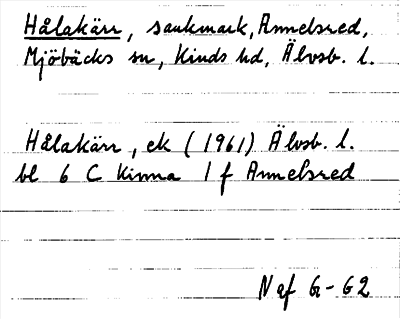 Hålakärr, sankmark, Annelsred,
Mjöbäcks sn, Kinds hd, Älvsb. l.
Hålakärr, ek (1961) Älvsb. l.
bl 6 C Kinna 1 f Annelsred
N af G-62